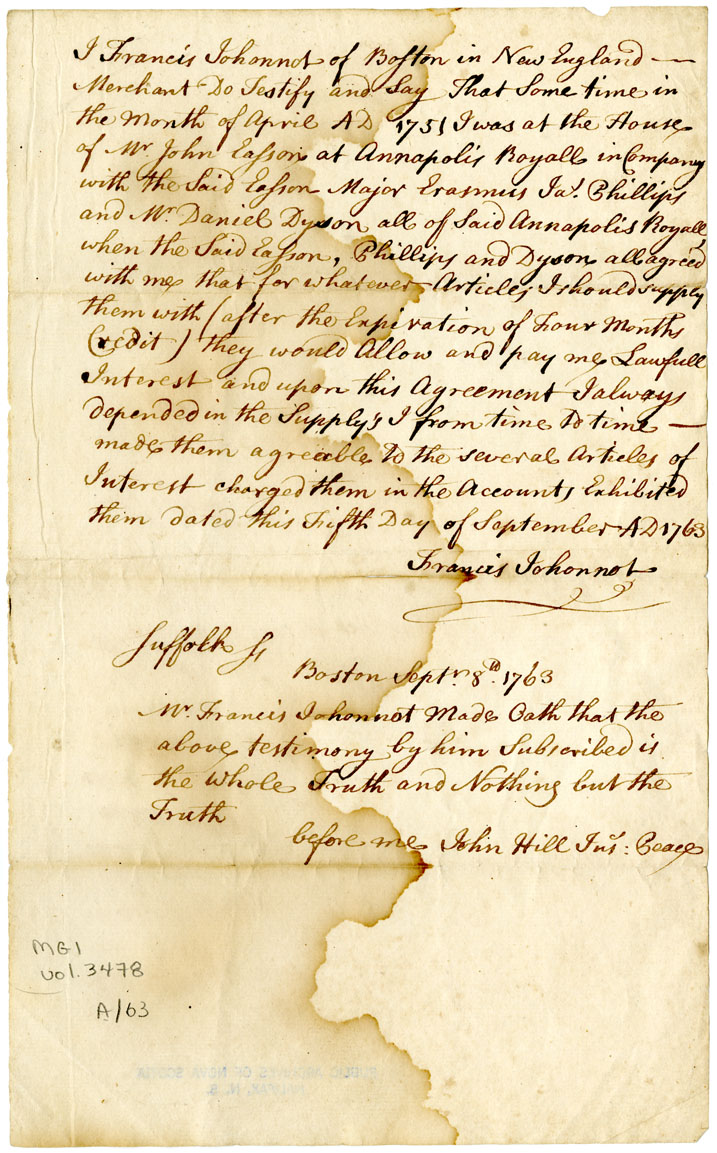 I Francis Johonnot of Boston in New England —
Merchant Do Testify and Say That Some time in
the Month of April AD 1751 I was at the House
of Mr John Easson at Annapolis Royall in Company
with the Said Easson Major Erasmus Jas. Phillips
and Mr Daniel Dyson all of Said Annapolis Royall,
when the Said Easson, Phillips and Dyson all agreed
with me that for whatever Articles I should supply
them with (after the Expiration of Four Months
Credit) they would Allow and pay me Lawfull
Interest and upon this Agreement I always
depended in the Supply's I from time to time —
made them agreable to the several Articles of
Interest charged them in the Accounts Exhibited
them dated this Fifth Day of September AD 1763
Francis Johonnot
Suffolk Ss
Boston Septr. 8th. 1763
Mr. Francis Johonnot Made Oath that the
above testimony by him Subscribed is
the whole Truth and Nothing but the
Truth
before me John Hill Jus: Peace
MG1
vol. 3478
A/63
PUBLIC ARCHIVES OF NOVA SCOTIA
HALIFAX, N. S.